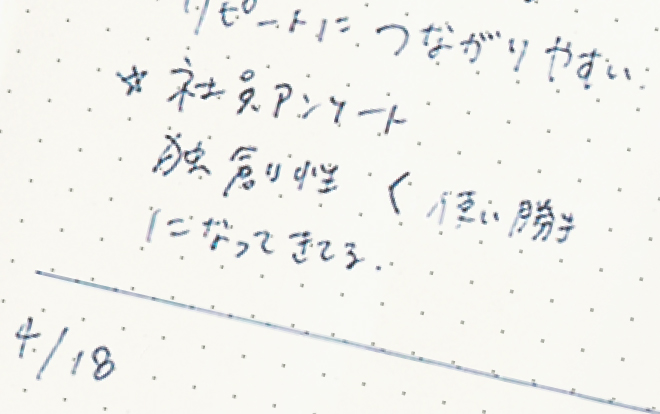 リピートにつながりやすい
☆ 社員アンケート
独創性 < 使い勝手
になってきてる.
4/18